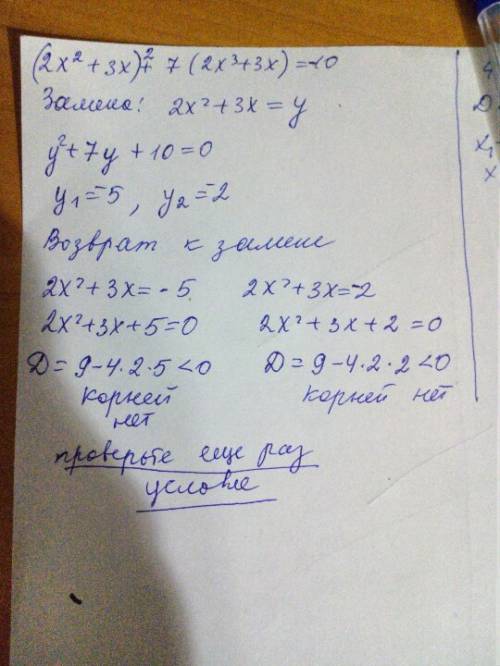 (2x²+3x)²+ 7(2x³+3x)=-10
Замена: 2x²+3x=y
y²+7y+10=0
y₁=-5, y₂=-2
Возврат к замене
2x²+3x=-5 2x²+3x=-2
2x²+3x+5=0 2x²+3x+2=0
Д=9-4·2·5<0 Д=9-4·2·2<0
корней корней нет
нет
проверьте еще раз
условие
Д
x₁
x